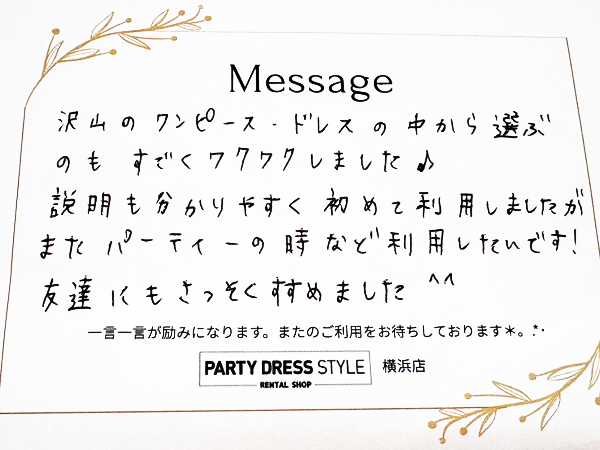 Message
沢山のワンピース・ドレスの中から選ぶ
のも すごくワクワクしました♪
説明も分かりやすく 初めて利用しましたが
また パーティーの時など利用したいです!
友達にもさっそくすすめました ^^
一言一言が励みになります。またのご利用をお待ちしております＊。.:*･
PARTY DRESS STYLE 横浜店
RENTAL SHOP